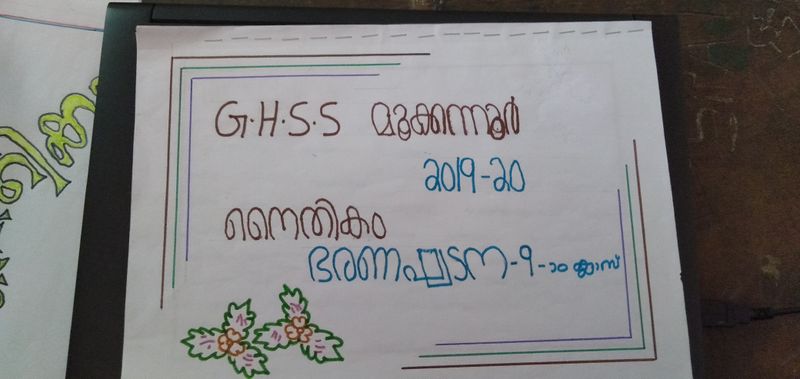 G.H.S.S മൂക്കന്നൂർ
2019-20
നൈതികം
ഭരണഘടന-9-ാം ക്ലാസ്